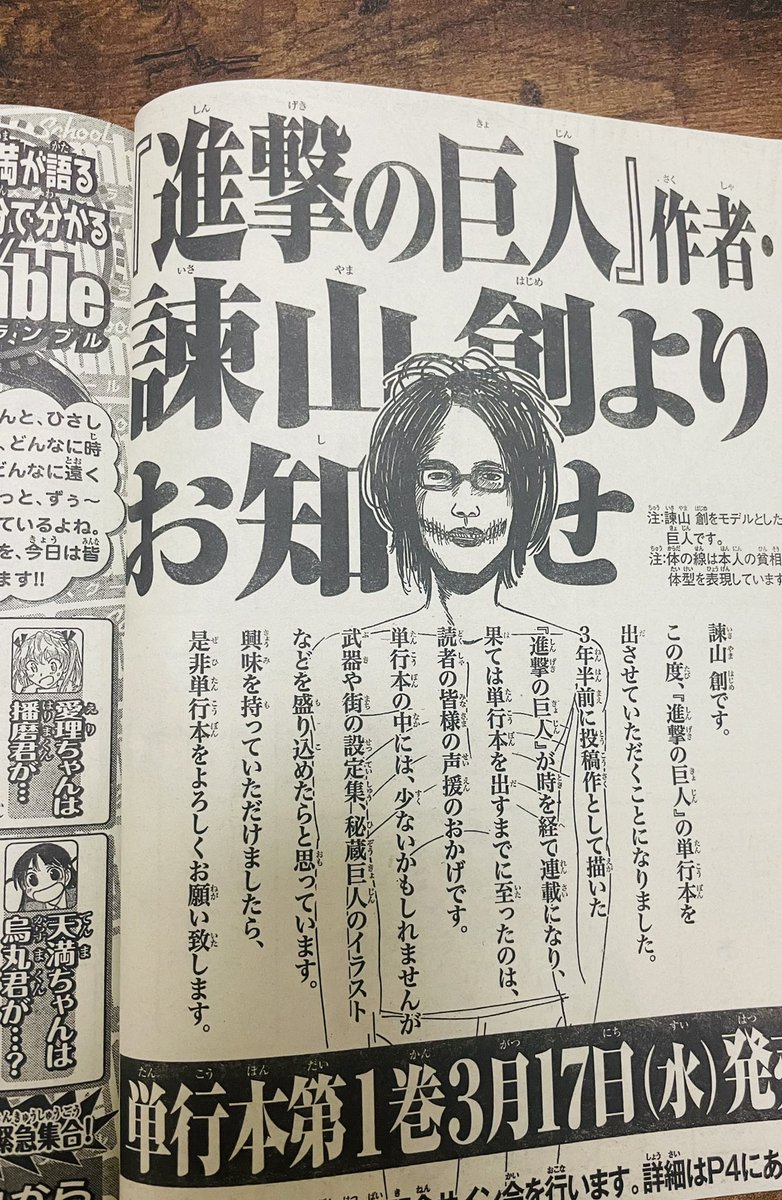 『進撃の巨人』作者・
諫山創より
お知らせ
注:諫山創をモデルとした
巨人です。
注:体の線は本人の貧相
体型を表現しています
諫山創です。
この度、『進撃の巨人』の単行本を
出させていただくことになりました。
3年半前に投稿作として描いた
『進撃の巨人』が時を経て連載になり、
果ては単行本を出すまでに至ったのは、
読者の皆様の声援のおかげです。
単行本の中には、少ないかもしれませんが
武器や街の設定集、秘蔵巨人のイラスト
などを盛り込めたらと思っています。
興味を持っていただけましたら、
是非単行本をよろしくお願い致します。
単行本第1巻3月17日(水)発
サイン会を行います。詳細はP4にあ
School
満が語る
分で分かる
able
ランブル
んと、ひさし
、どんなに時
どんなに遠く
っと、ずぅ〜
ているよね。
を、今日は皆
ます!!
愛理ちゃんは
播磨君が…
天満ちゃんは
烏丸君が…?
緊急集合!
から